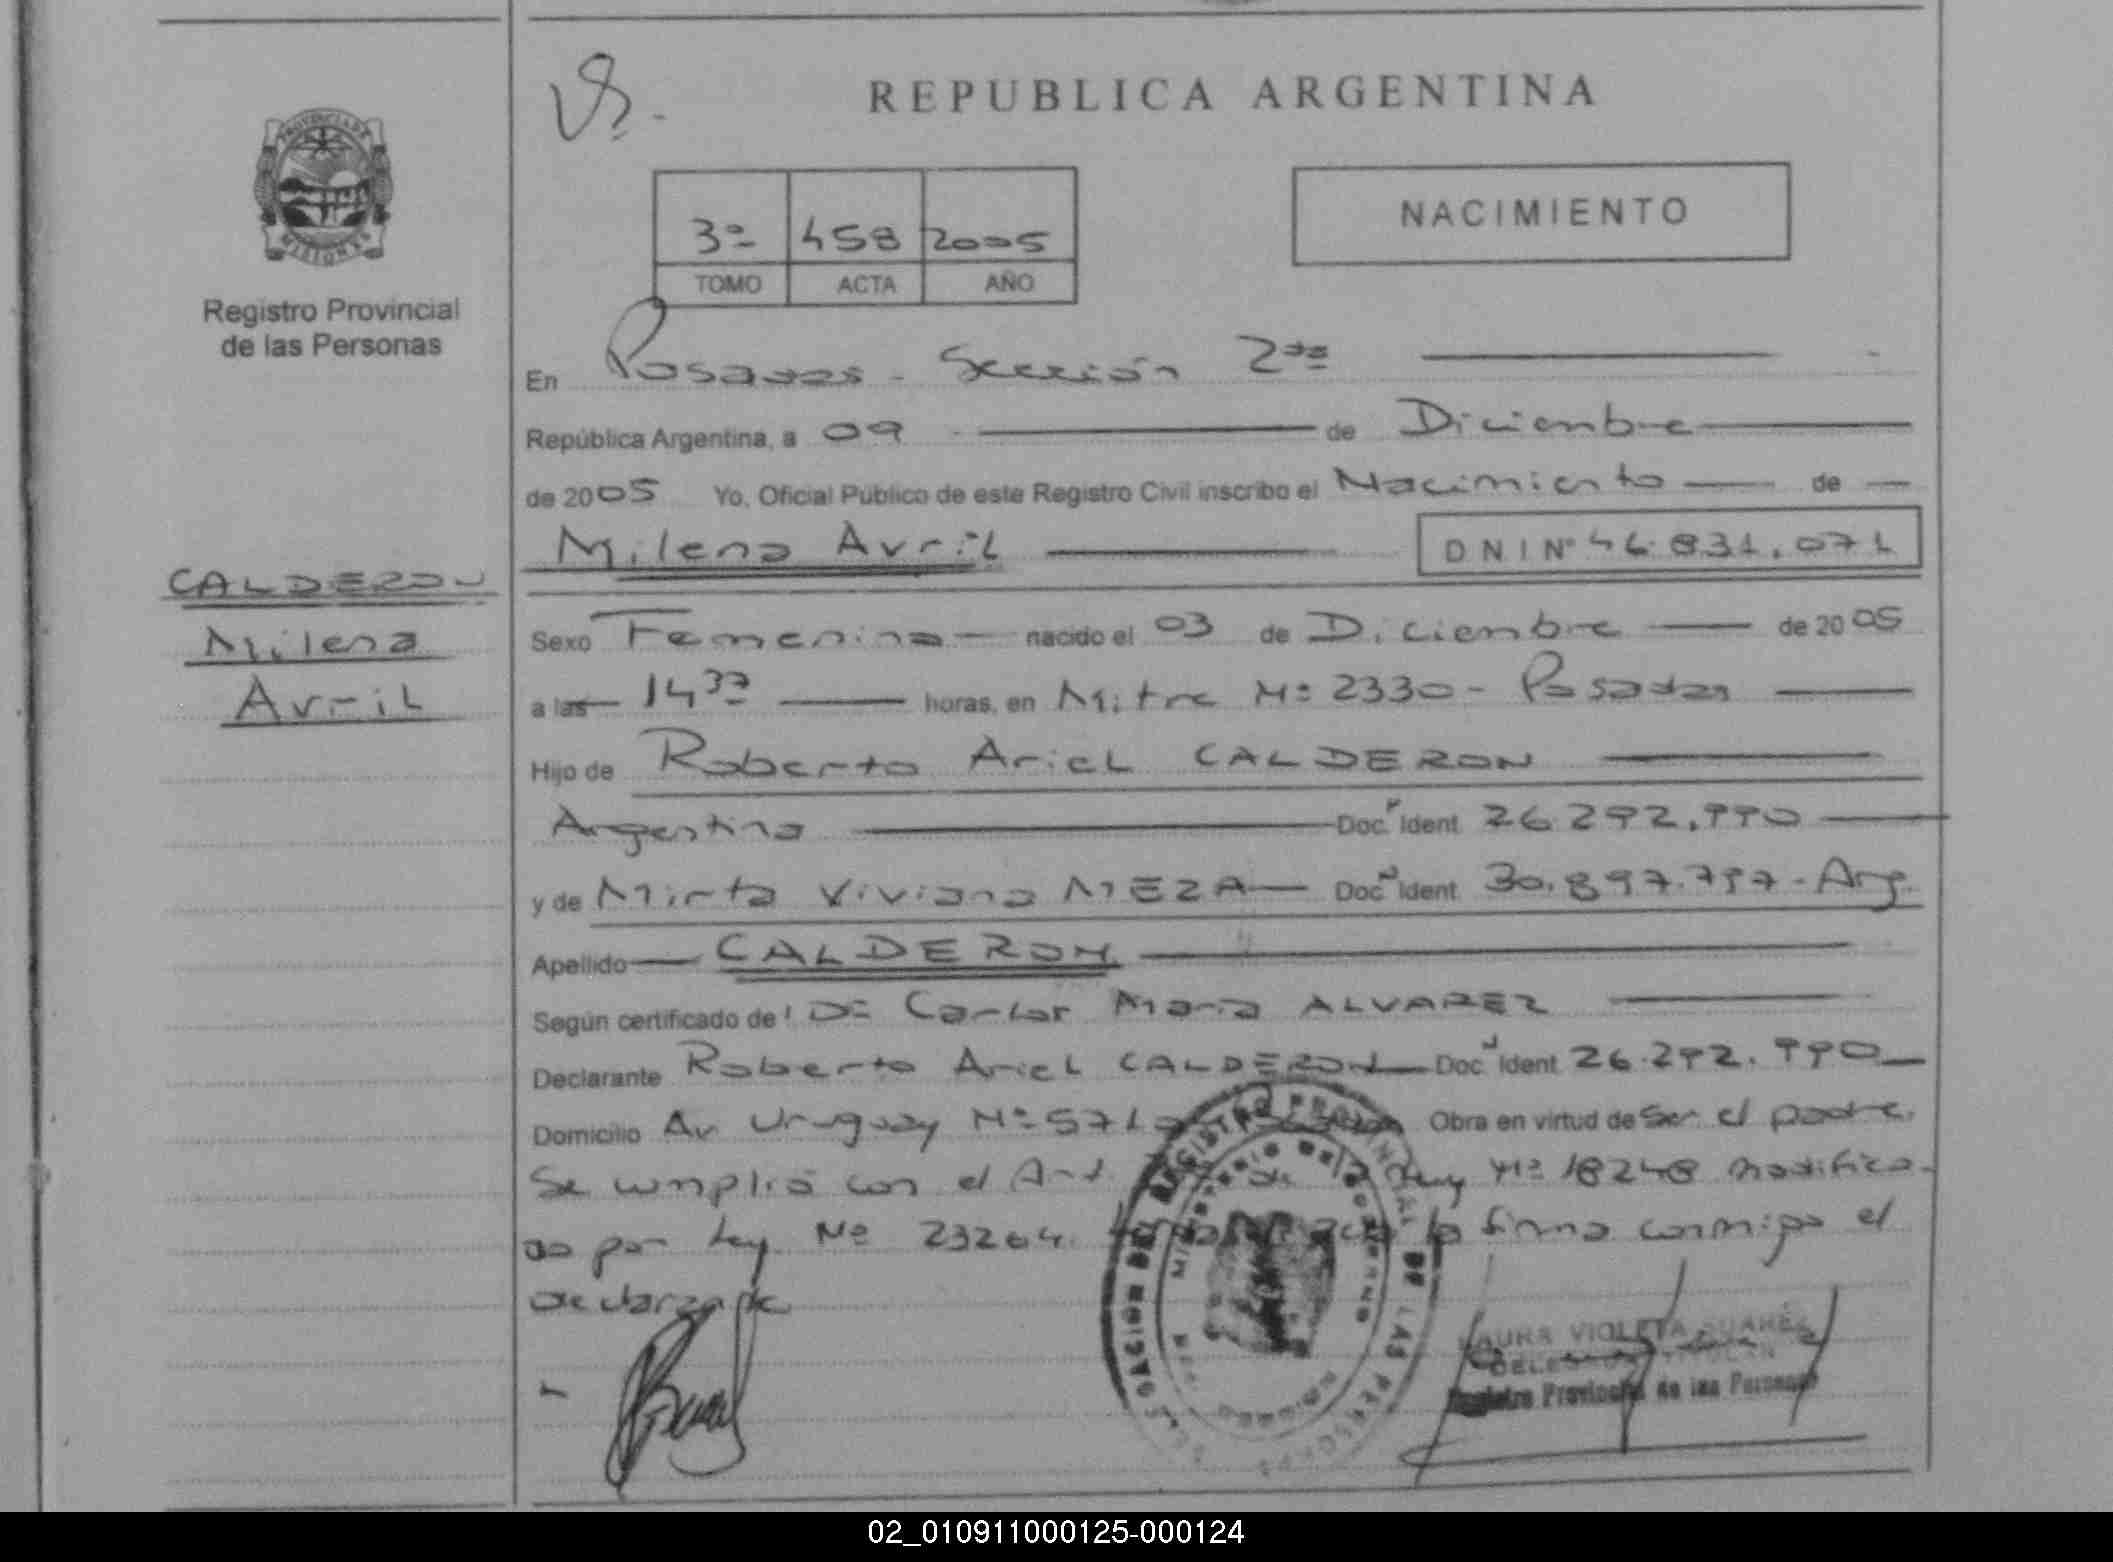 REPUBLICA ARGENTINA
PROVINCIA DE
MISIONES
Registro Provincial
de las Personas
3ª 458 2005
TOMO ACTA AÑO
NACIMIENTO
En Posadas - Sección 2da
República Argentina, a 09 de Diciembre
de 2005 Yo, Oficial Público de este Registro Civil inscribo el Nacimiento de
Milena Avril DNI Nº 46.831.071
CALDERON
Milena
Avril
Sexo Femenino nacido el 03 de Diciembre de 2005
a las 14 37 horas, en Mitre Nº 2330 - Posadas
Hijo de Roberto Ariel CALDERON
Argentino Doc. Ident 26.292.990
y de Mirta Viviana MEZA Doc. Ident 30.897.797 - Arg.
Apellido CALDERON
Según certificado de Dr Carlos Maria ALVAREZ
Declarante Roberto Ariel CALDERON Doc. Ident 26.292.990
Domicilio Av Uruguay Nº 571 Obra en virtud de ser el padre.
Se cumplió con el Art. de la Ley Nº 18248 modifica-
do por Ley Nº 23264. la firma conmigo el
declarante
DELEGACION DEL REGISTRO PROVINCIAL DE LAS PERSONAS
MINISTERIO DE GOBIERNO
LAURA VIOLETA SUAREZ
DELEGADA TITULAR
Registro Provincial de las Personas
02_010911000125-000124